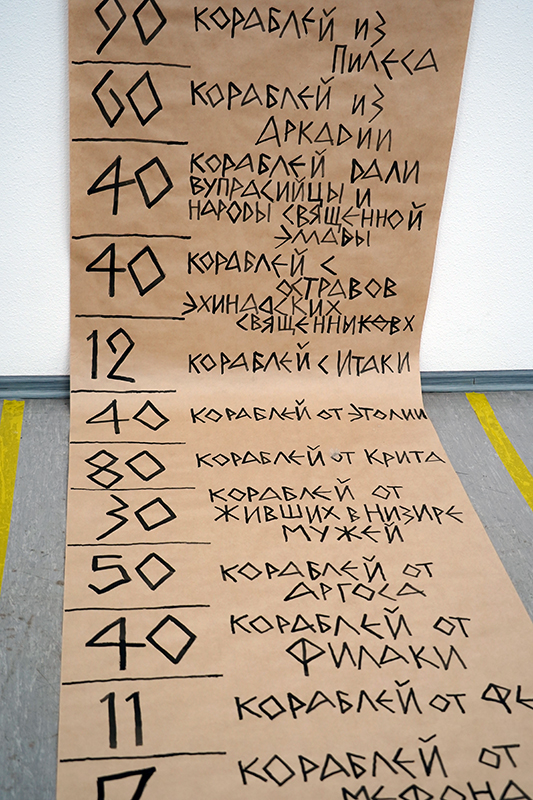 90 КОРАБЛЕЙ ИЗ
ПИЛЕСА
60 КОРАБЛЕЙ ИЗ
АРКАДИИ
40 КОРАБЛЕЙ ДАЛИ
ВУПРАСИЙЦЫ И
НАРОДЫ СВЯЩЕННОЙ
ЭМАДЫ
40 КОРАБЛЕЙ С
ОСТРАВОВ
ЭХИНАДСКИХ
СВЯЩЕННИКОВХ
12 КОРАБЛЕЙ С ИТАКИ
40 КОРАБЛЕЙ ОТ ЭТОЛИИ
80 КОРАБЛЕЙ ОТ КРИТА
30 КОРАБЛЕЙ ОТ
ЖИВШИХ В НИЗИРЕ
МУЖЕЙ
50 КОРАБЛЕЙ ОТ
АРГОСА
40 КОРАБЛЕЙ ОТ
ФИЛАКИ
11 КОРАБЛЕЙ ОТ ФЕ
7 КОРАБЛЕЙ ОТ
МЕФОНА